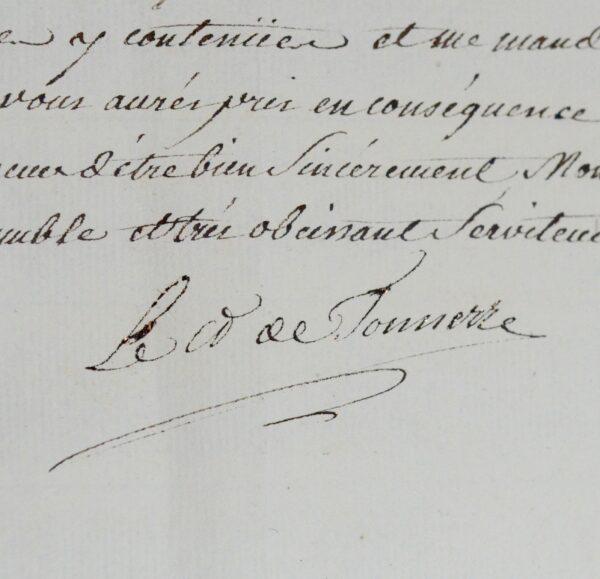 y contenües et me mand
vous aurés pris en conséquence
d'être bien sincèrement Mon
umble et très obéissant Serviteur
Le cd de Tonnerre